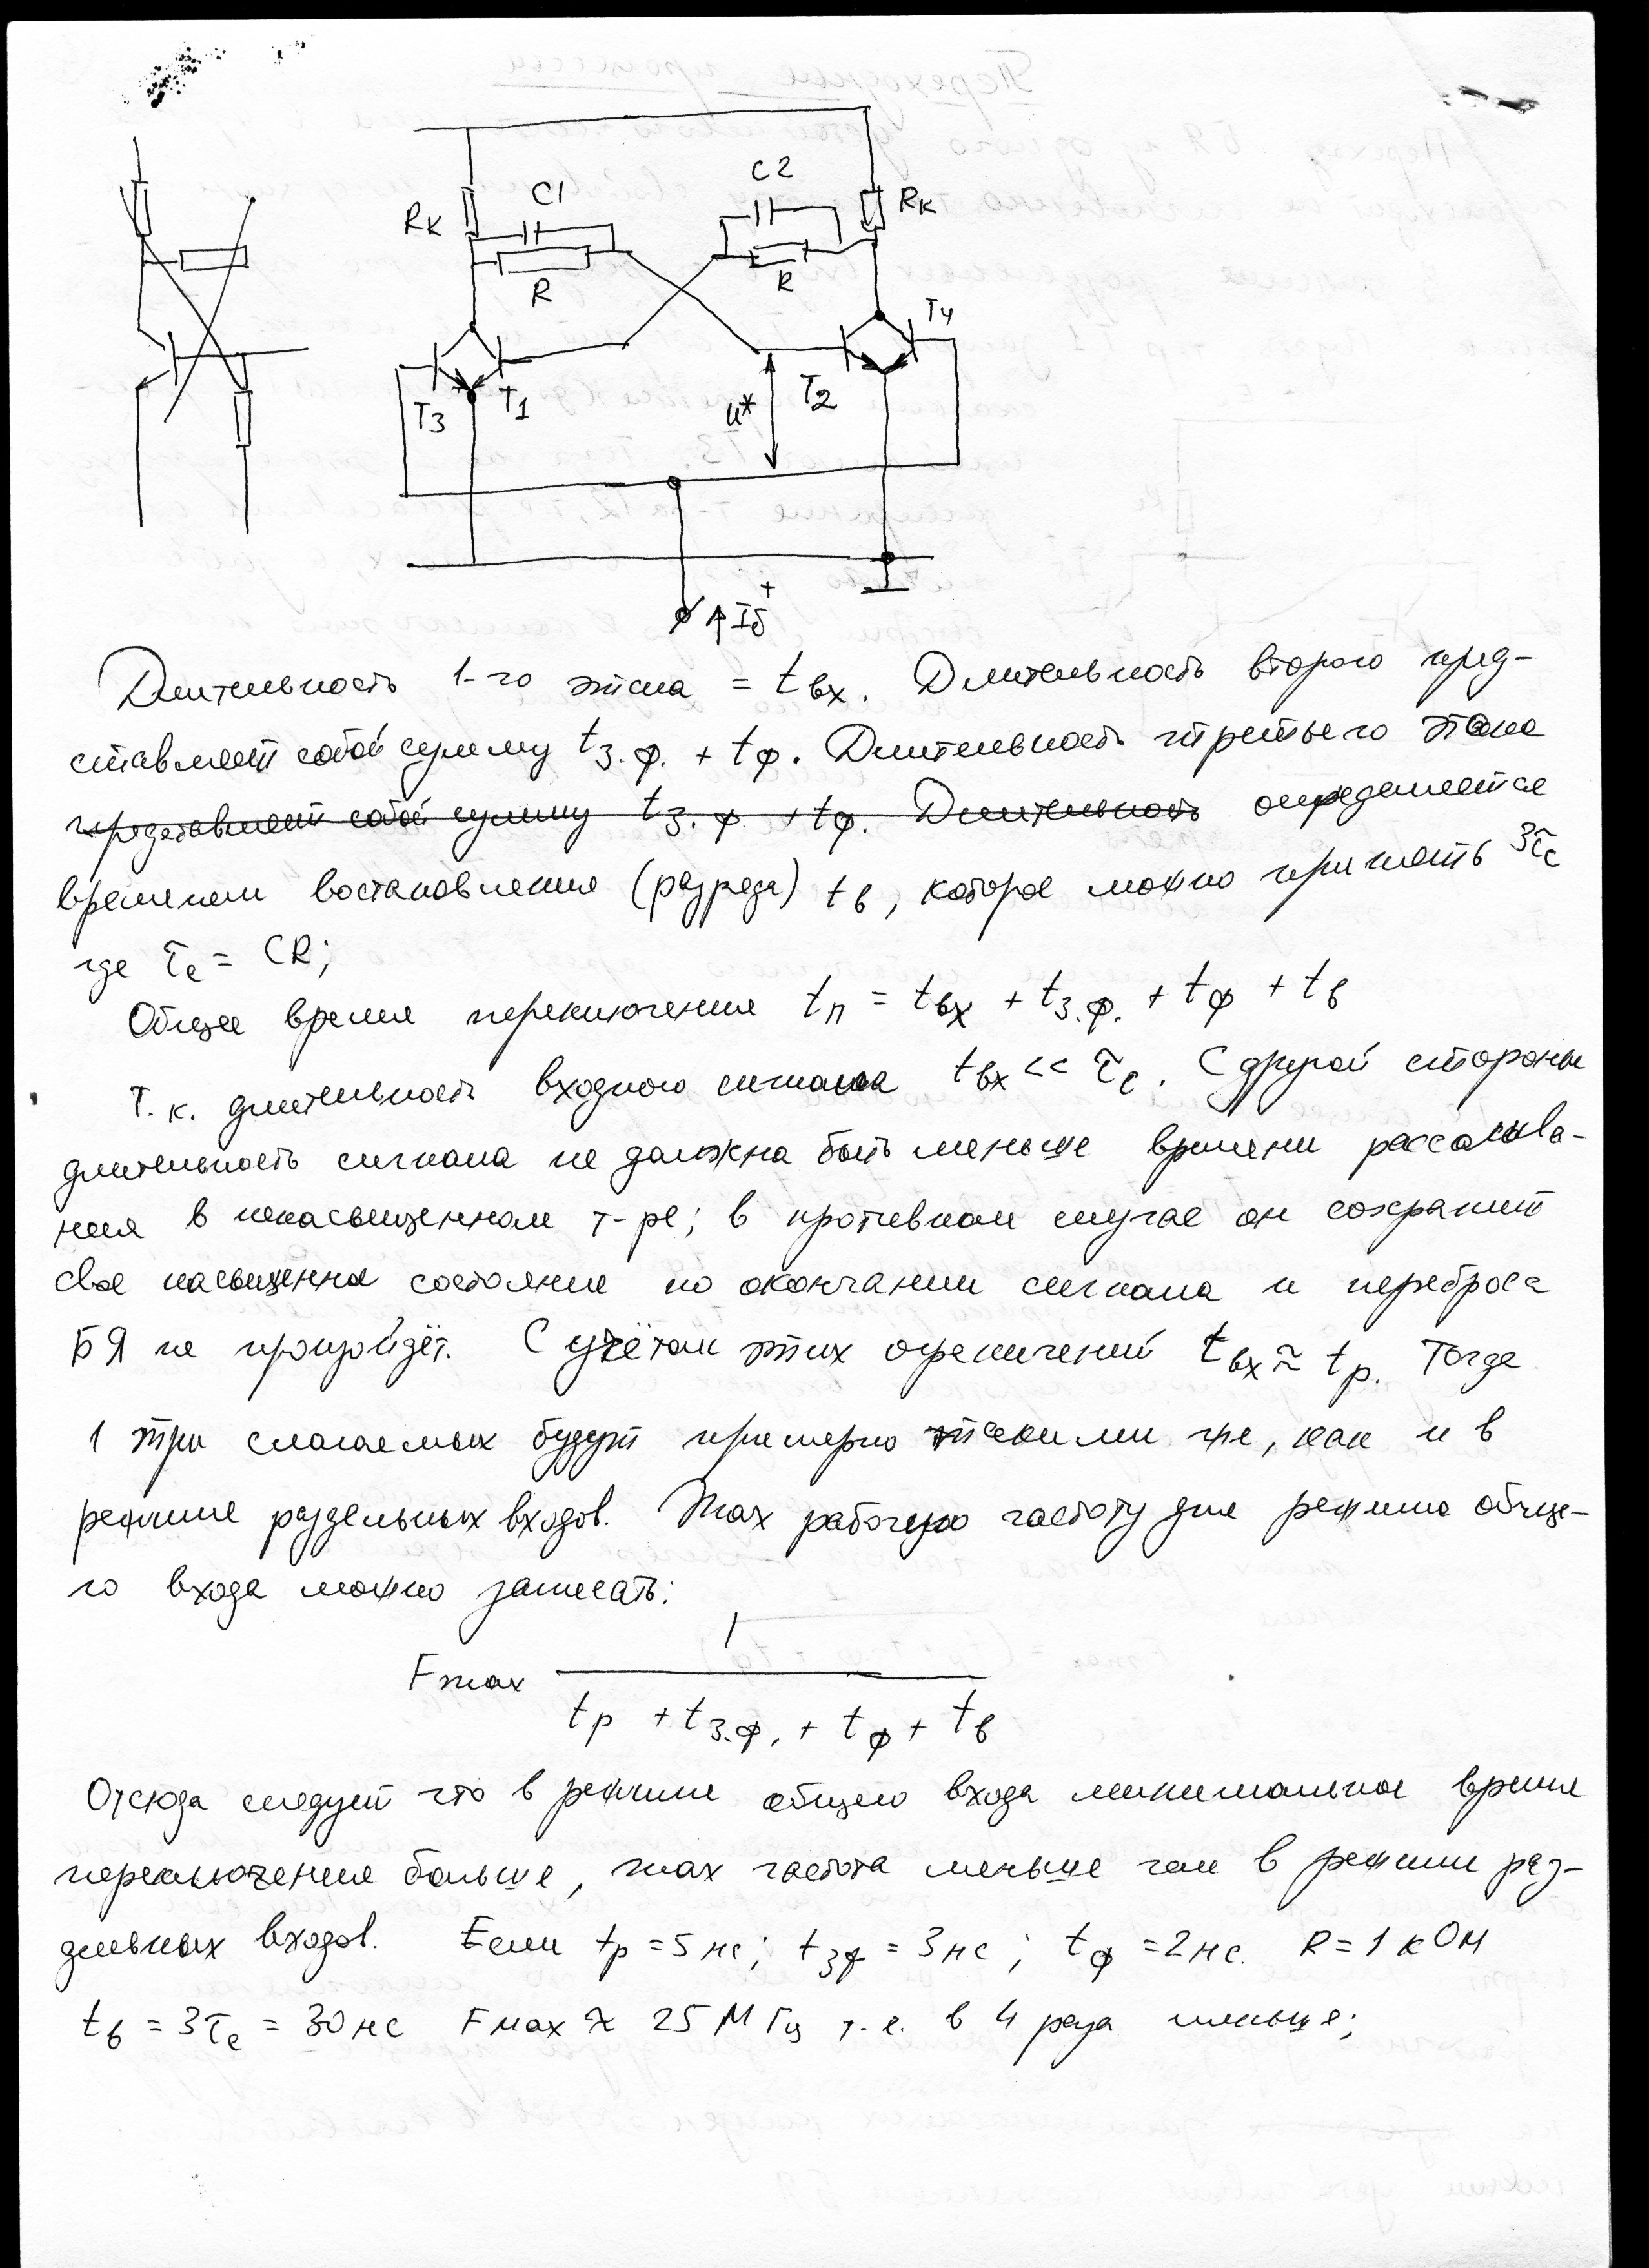 C1
C2
Rк
Rк
R
R
T4
T3
T1
u*
T2
+
Iб
Длительность 1-го этапа = tвх. Длительность второго пред-
ставляет собой сумму tз.ф. + tф. Длительность третьего этапа
представляет собой сумму tз.ф. + tф. Длительность определяется
временем востановления (разряда) tв, которое можно принять 3τc
где τc = CR;
Общее время переключения tп = tвх + tз.ф. + tф + tв
Т.к. длительность входного сигнала tвх << τc. С другой стороны
длительность сигнала не должна быть меньше времени рассасыва-
ния в ненасыщенном т-ре; в противном случае он сохранит
свое насыщенное состояние по окончании сигнала и переброса
БЯ не произойдёт. С учётом этих ограничений tвх ≈ tр. Тогда
1 три слагаемых будут примерно такими же, как и в
режиме раздельных входов. Max рабочую частоту для режима обще-
го входа можно записать:
1
Fmax
tр + tз.ф. + tф + tв
Отсюда следует что в режиме общего входа минимальное время
переключения больше, max частота меньше чем в режиме раз-
дельных входов. Если tр = 5 нс; tзф = 3 нс; tф = 2 нс. R = 1 кОм
tв = 3τc = 30 нс Fmax ≈ 25 МГц т.е. в 4 раза меньше;